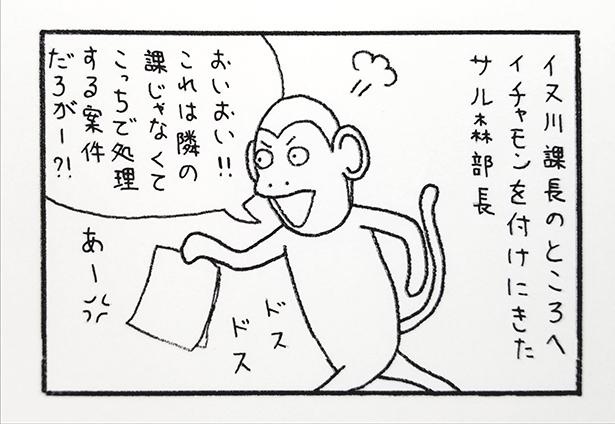 イヌ川課長のところへ
イチャモンを付けにきた
サル森部長
おいおい!!
これは隣の
課じゃなくて
こっちで処理
する案件
だろがー?!
あー
ドス
ドス